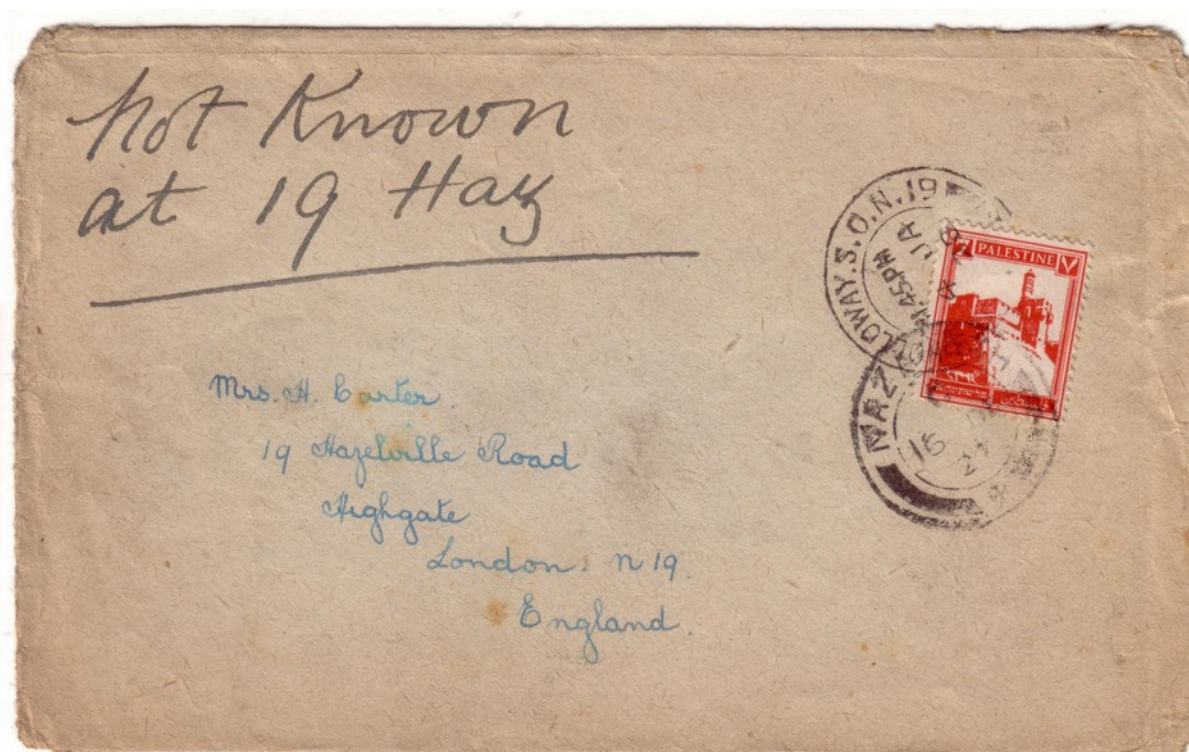 Not Known
at 19 Haz
LOWAY.S.O.N.19
11.45PM
JA
PALESTINE
NAZARETH
16
27
Mrs. H. Carter.
19 Hazelville Road
Highgate
London. N 19.
England.